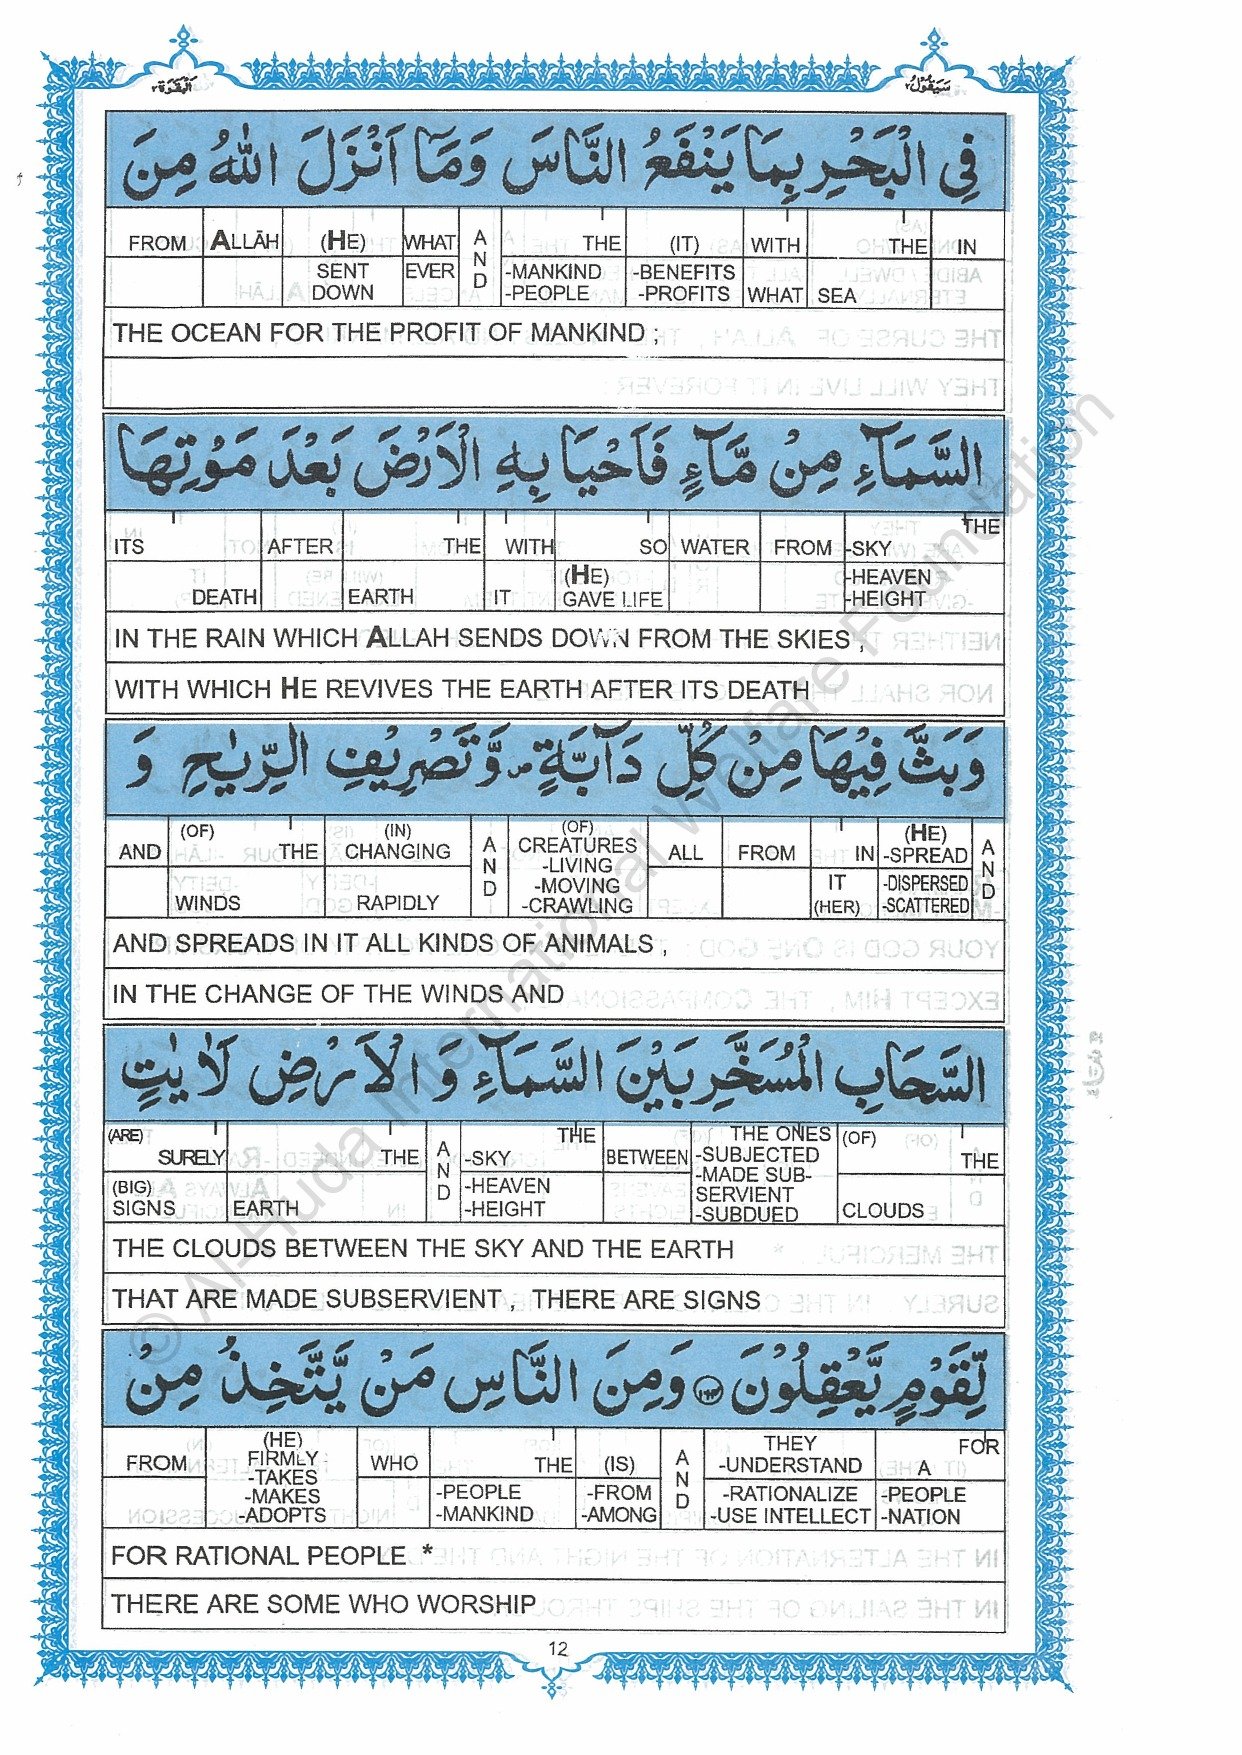 البقرة ٢
سيقول ٢
فِي الْبَحْرِ بِمَا يَنْفَعُ النَّاسَ وَمَآ اَنْزَلَ اللّٰهُ مِنَ
FROM ALLĀH (HE) WHAT AND THE (IT) WITH THE IN
SENT DOWN EVER -MANKIND -PEOPLE -BENEFITS -PROFITS WHAT SEA
THE OCEAN FOR THE PROFIT OF MANKIND ;
السَّمَآءِ مِنْ مَّآءٍ فَاَحْيَا بِهِ الْاَرْضَ بَعْدَ مَوْتِهَا
ITS AFTER THE WITH SO WATER FROM THE -SKY
DEATH EARTH IT (HE) GAVE LIFE -HEAVEN -HEIGHT
IN THE RAIN WHICH ALLAH SENDS DOWN FROM THE SKIES ,
WITH WHICH HE REVIVES THE EARTH AFTER ITS DEATH
وَبَثَّ فِيْهَا مِنْ كُلِّ دَآبَّةٍ ۪ وَّتَصْرِيْفِ الرِّيٰحِ وَ
AND (OF) THE (IN) CHANGING AND (OF) CREATURES -LIVING ALL FROM IN (HE) -SPREAD AND
WINDS RAPIDLY -MOVING -CRAWLING IT (HER) -DISPERSED -SCATTERED
AND SPREADS IN IT ALL KINDS OF ANIMALS ,
IN THE CHANGE OF THE WINDS AND
السَّحَابِ الْمُسَخَّرِ بَيْنَ السَّمَآءِ وَ الْاَرْضِ لَاٰيٰتٍ
(ARE) SURELY THE AND THE -SKY BETWEEN THE ONES -SUBJECTED (OF) THE
(BIG) SIGNS EARTH -HEAVEN -HEIGHT -MADE SUB- SERVIENT -SUBDUED CLOUDS
THE CLOUDS BETWEEN THE SKY AND THE EARTH
THAT ARE MADE SUBSERVIENT , THERE ARE SIGNS
لِّقَوْمٍ يَّعْقِلُوْنَ ۝١٦٤ وَمِنَ النَّاسِ مَنْ يَّتَّخِذُ مِنْ
FROM (HE) FIRMLY -TAKES WHO THE (IS) AND THEY -UNDERSTAND FOR A
-MAKES -ADOPTS -PEOPLE -MANKIND -FROM -AMONG -RATIONALIZE -USE INTELLECT -PEOPLE -NATION
FOR RATIONAL PEOPLE *
THERE ARE SOME WHO WORSHIP
12
© Al-Huda International Welfare Foundation